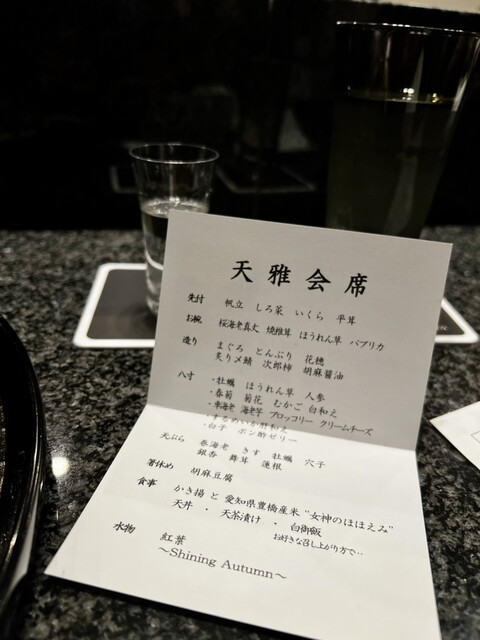 天雅会席
先付 帆立 しろ菜 いくら 平茸
お椀 桜海老真丈 焼椎茸 ほうれん草 パプリカ
造り まぐろ とんぶり 花穂
炙り〆鯖 次郎柿 胡麻醤油
八寸 ・牡蠣 ほうれん草 人参
・春菊 菊花 むかご 白和え
・車海老 海老芋 ブロッコリー クリームチーズ
・するめいか肝和え
・白子 ポン酢ゼリー
天ぷら 巻海老 きす 牡蠣 穴子
銀杏 舞茸 蓮根
箸休め 胡麻豆腐
食事 かき揚 と 愛知県豊橋産米 "女神のほほえみ"
天丼 ・ 天茶漬け ・ 白御飯
お好きな召し上がり方で…
水物 紅葉
～Shining Autumn～